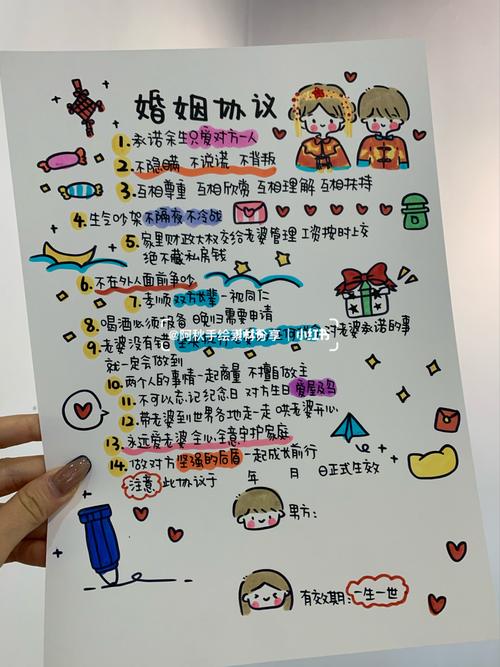 婚姻协议
1. 承诺余生只爱对方一人
2. 不隐瞒 不说谎 不背叛
3. 互相尊重 互相欣赏 互相理解 互相扶持
4. 生气吵架不隔夜不冷战
5. 家里财政大权交给老婆管理 工资按时上交
绝不藏私房钱
6. 不在外人面前争吵
7. 孝顺双方长辈一视同仁
8. 喝酒必须报备 晚归需要申请
@阿秋手绘素材分享 小红书
9. 老婆没有错 对老婆承诺的事
就一定会做到
10. 两个人的事情一起商量 不擅自做主
11. 不可以忘记纪念日 对方生日 爱屋及乌
12. 带老婆到世界各地走一走 哄老婆开心
13. 永远爱老婆 全心全意守护家庭
14. 做对方坚强的后盾一起成长前行
注意 此协议于 年 月 日正式生效
男方:
有效期:一生一世